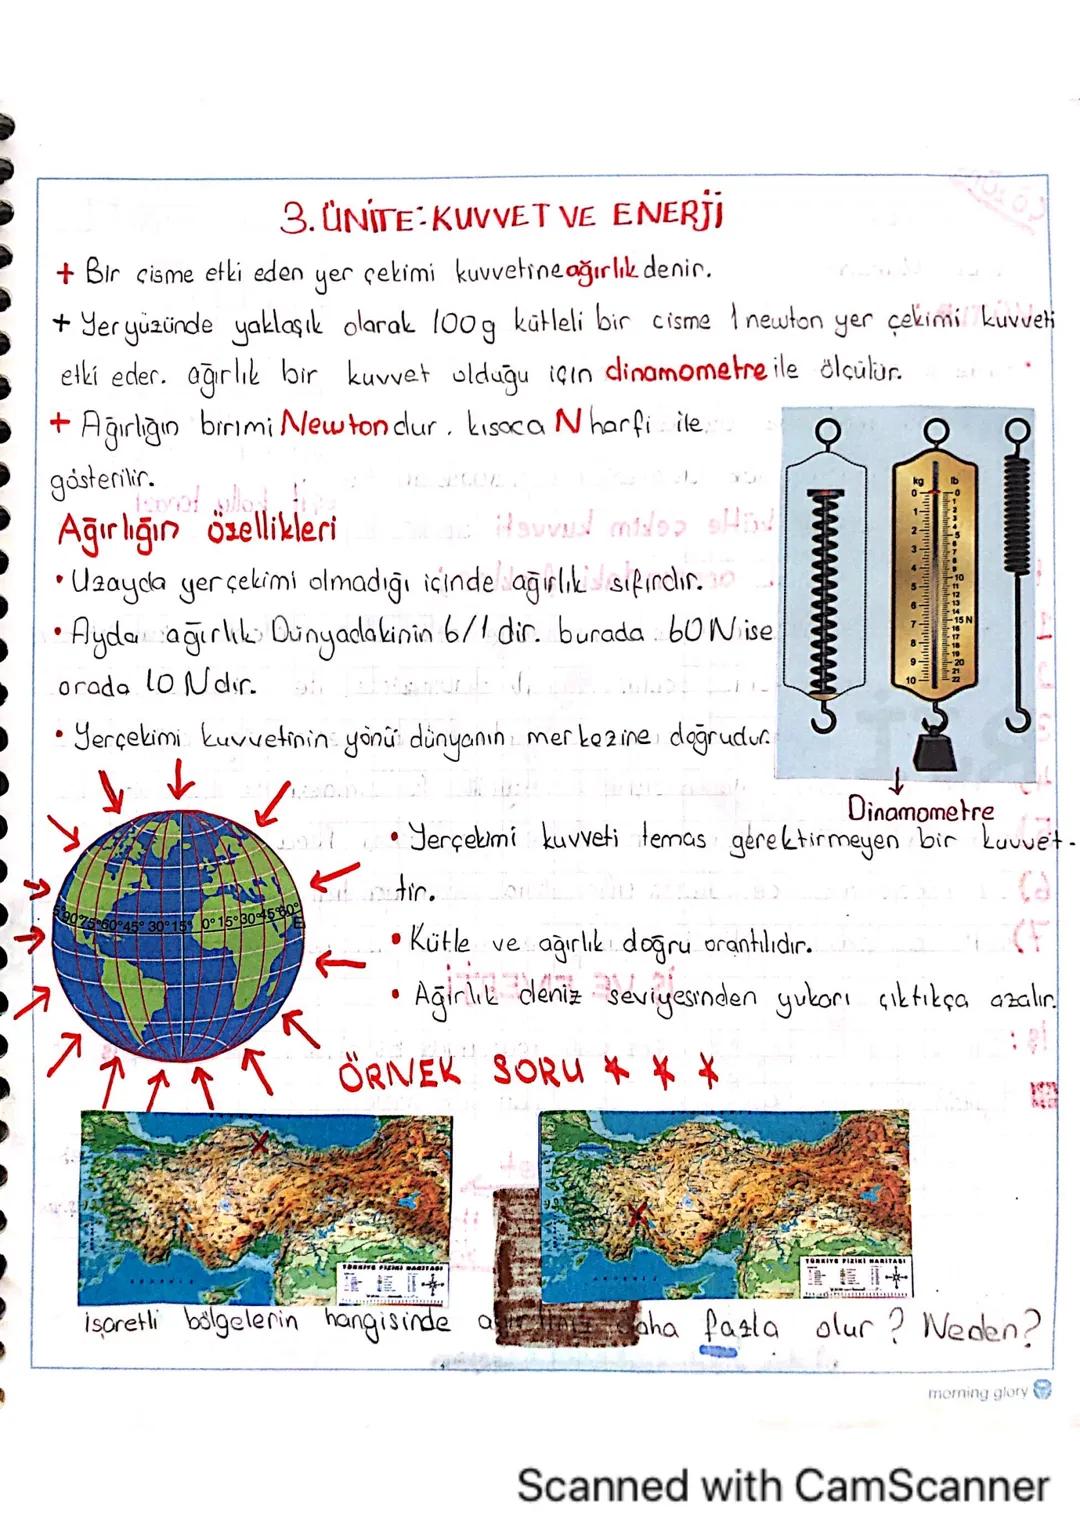 3. ÜNİTE: KUVVET VE ENERJİ
+ Bir cisme etki eden yer çekimi kuvvetine ağırlık denir.
+ Yeryüzünde yaklaşık olarak 100g kütleli bir cisme 1 newton yer çekimi kuvveti
etki eder. ağırlık bir kuvvet olduğu için dinamometre ile ölçülür.
+ Ağırlığın birimi Newtondur. kısaca N harfi ile
gösterilir.
Ağırlığın özellikleri
• Uzayda yerçekimi olmadığı içinde ağırlık sıfırdır.
• Ayda ağırlık Dünyadakinin 6/1 dir. burada 60 N ise
orada 10 N dır.
• Yerçekimi kuvvetinin yönü dünyanın merkezine doğrudur.
kg lb
0 0
1 1
2 2
3 3
4 4
5 5
6 6
7 7
8 8
9 9
10 10
11
12
13
14
15 N
16
17
18
19
20
21
22
Dinamometre
90° 75° 60° 45° 30° 15° 0° 15° 30° 45° 60°
E
• Yerçekimi kuvveti temas gerektirmeyen bir kuvvet-
tir.
• Kütle ve ağırlık doğru orantılıdır.
• Ağırlık deniz seviyesinden yukarı çıktıkça azalır.
ÖRNEK SORU ★ ★ ★
TÜRKİYE FİZİKİ HARİTASI
TÜRKİYE FİZİKİ HARİTASI
işaretli bölgelerin hangisinde daha fazla olur? Neden?
morning glory
Scanned with CamScanner